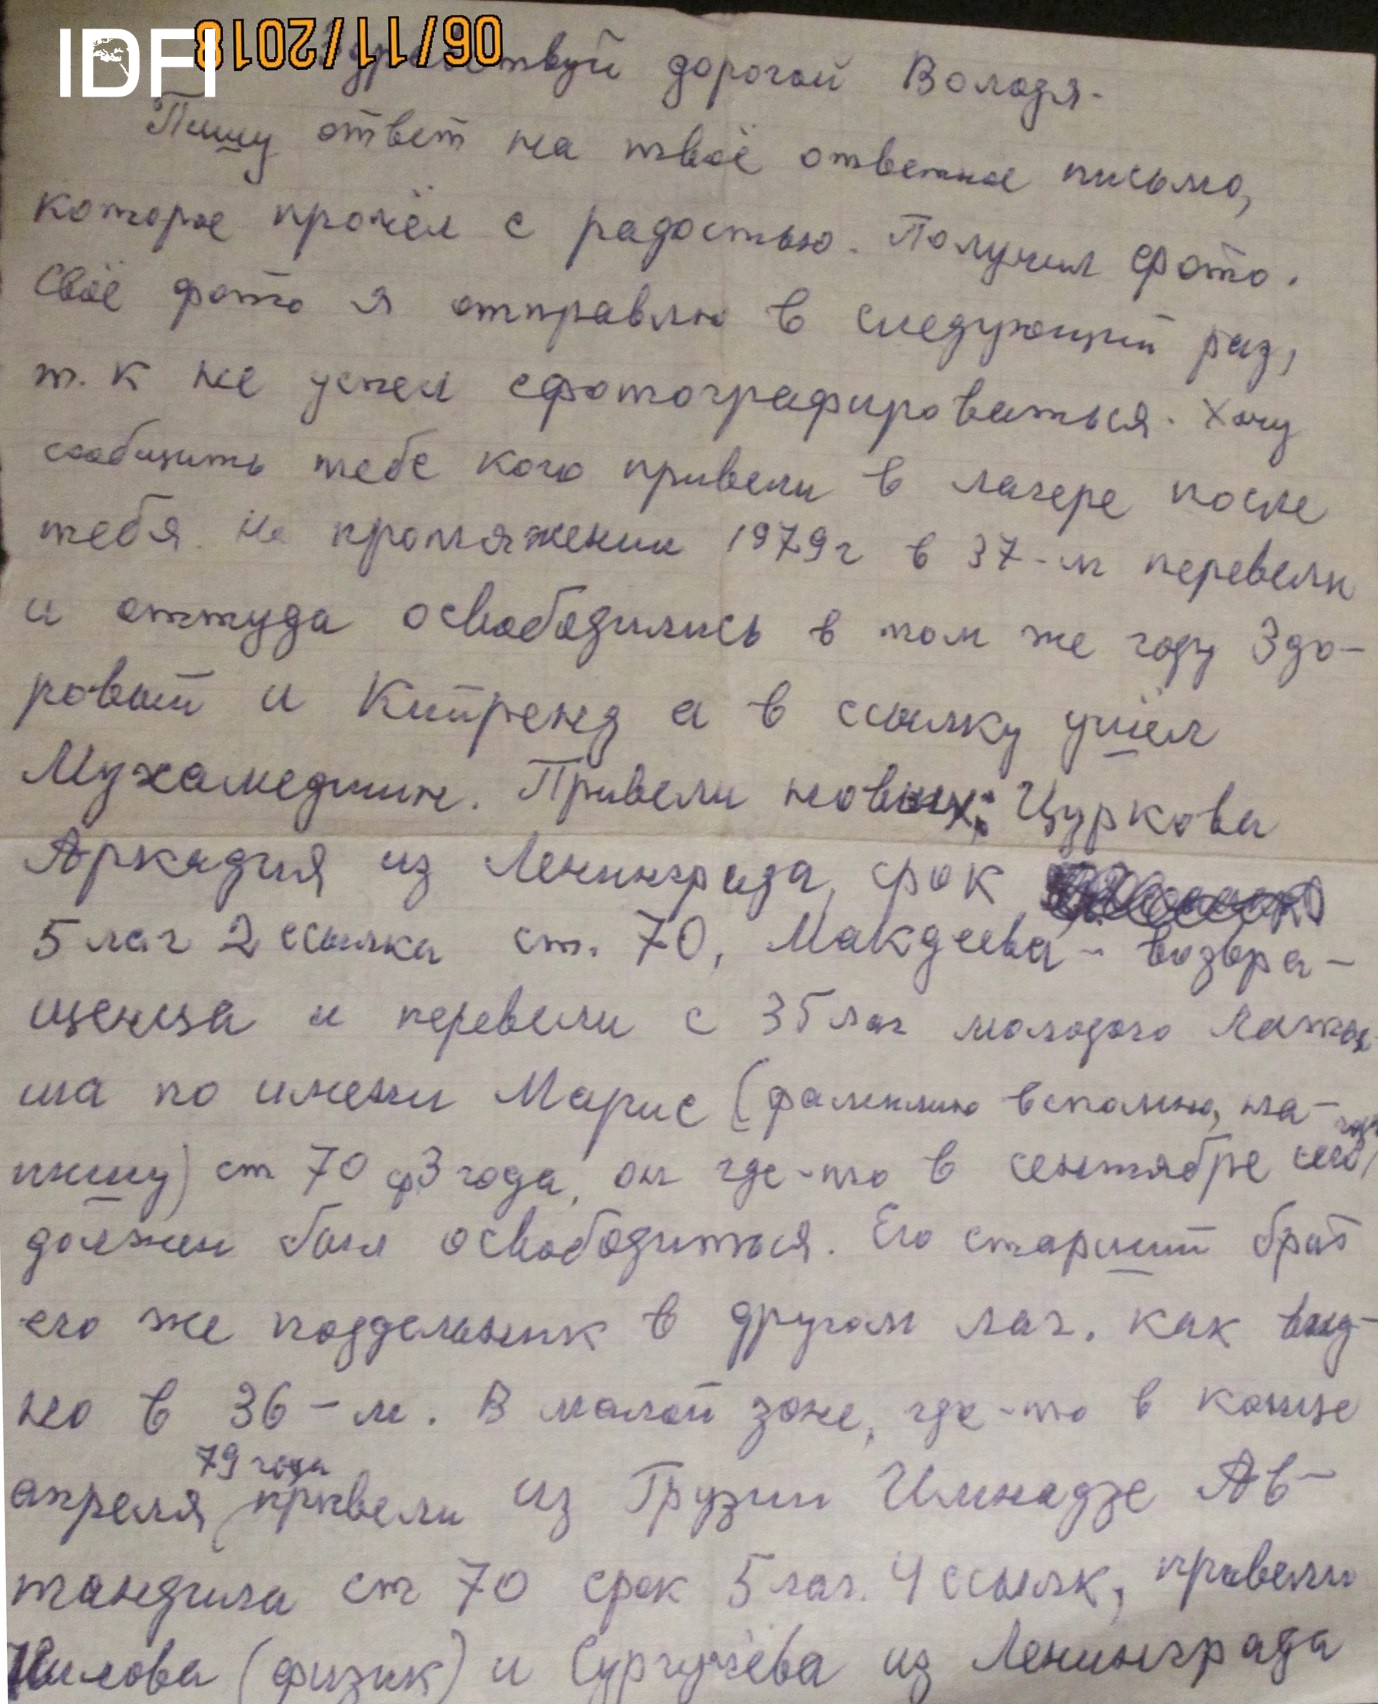 IDFI
06/11/2018
Здравствуй дорогой Володя.
Пишу ответ на твоё ответное письмо,
которое прочёл с радостью. Получил фото.
Своё фото я отправлю в следующий раз,
т. к не успел сфотографироваться. Хочу
сообщить тебе кого привели в лагере после
тебя. На протяжении 1979г в 37-м перевели
и оттуда освободились в том же году Здо-
ровый и Кийренд а в ссылку ушёл
Мухамедшин. Привели новых: Цуркова
Аркадия из Ленинграда, срок
5 лаг 2 ссылка ст. 70, Макдеева - возвра-
щенца и перевели с 35 лаг молодого латы-
ша по имени Марис (фамилию вспомню, на-
пишу) ст 70 3 года, он где-то в сентябре сего года
должен был освободиться. Его старший брат
его же подельник в другом лаг. как вид-
но в 36-м. В малой зоне, где-то в конце
апреля 79 года привели из Грузии Имнадзе Ав-
тандила ст 70 срок 5 лаг. 4 ссылк, привели
(физик) и Сургучёва из Ленинграда